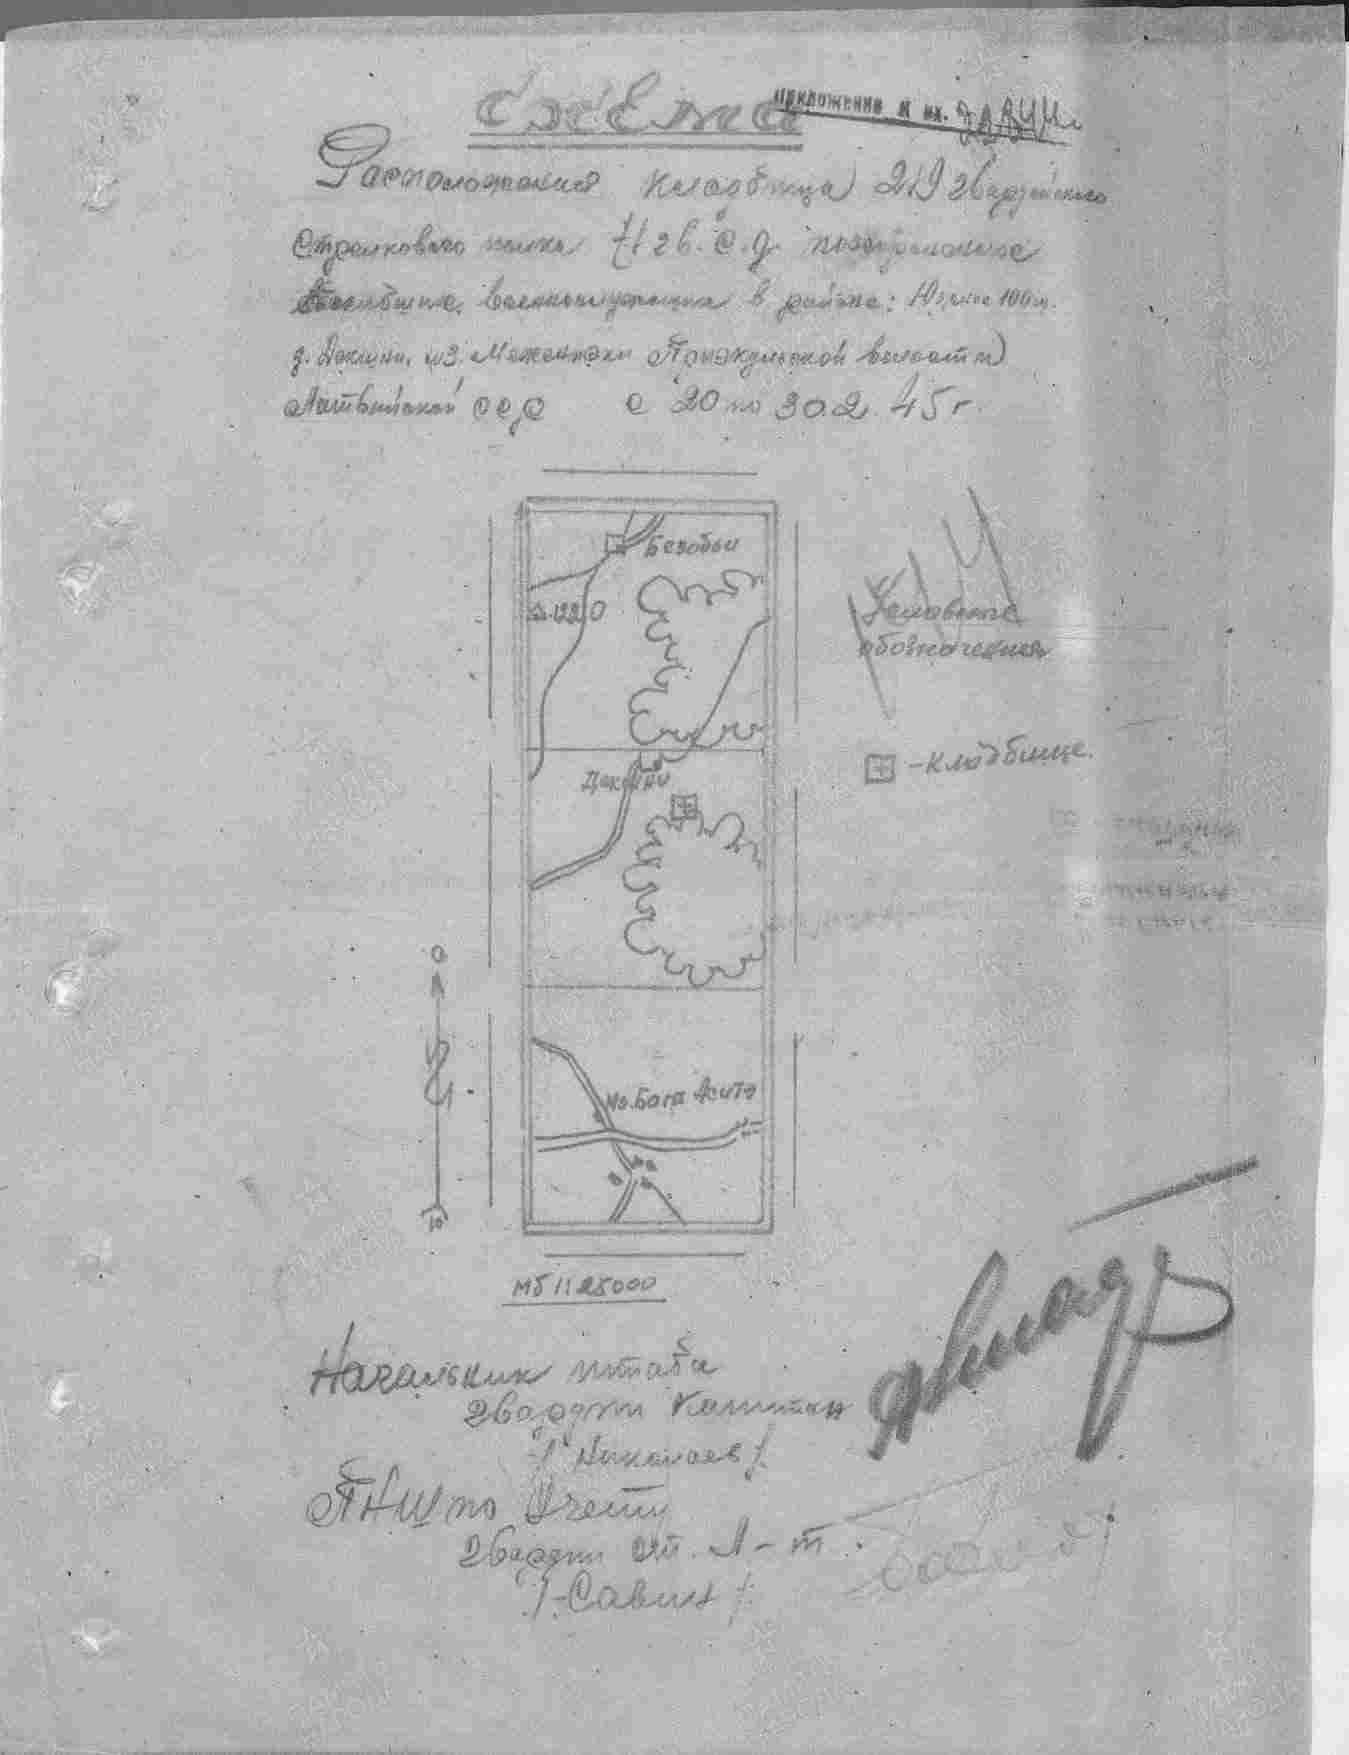 Схема
приложение к вх.
Расположения кладбища 219 гвардейского
Стрелкового полка 71 гв. с. д. похороненые
военнослужащие в районе: Южнее 100 м.
д. Дакшни, Приэкульской волости
Латвийской ССР с 20 по 30.2.45 г.
Безобьи
122,0
Дакшни
Мз. Бога Асите
Условные
обозначения
-кладбище.
С
Ю
МБ 1:25000
Начальник штаба
гвардии капитан
/ Николаев /
ПНШ по Учету
гвардии ст. Л-т
/-Савин /